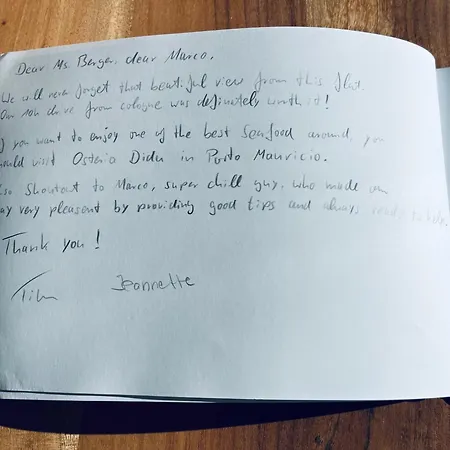 Dear Ms. Berger, dear Marco,
We will never forget that beatiful view from this flat.
Our 10h drive from cologne was definately worth it!
If you want to enjoy one of the best Seafood around, you
should visit Osteria Didu in Porto Mauricio.
Also Shoutout to Marco, super chill guy, who made our
stay very pleasent by providing good tips and always
Thank you!
Tim Jeannette